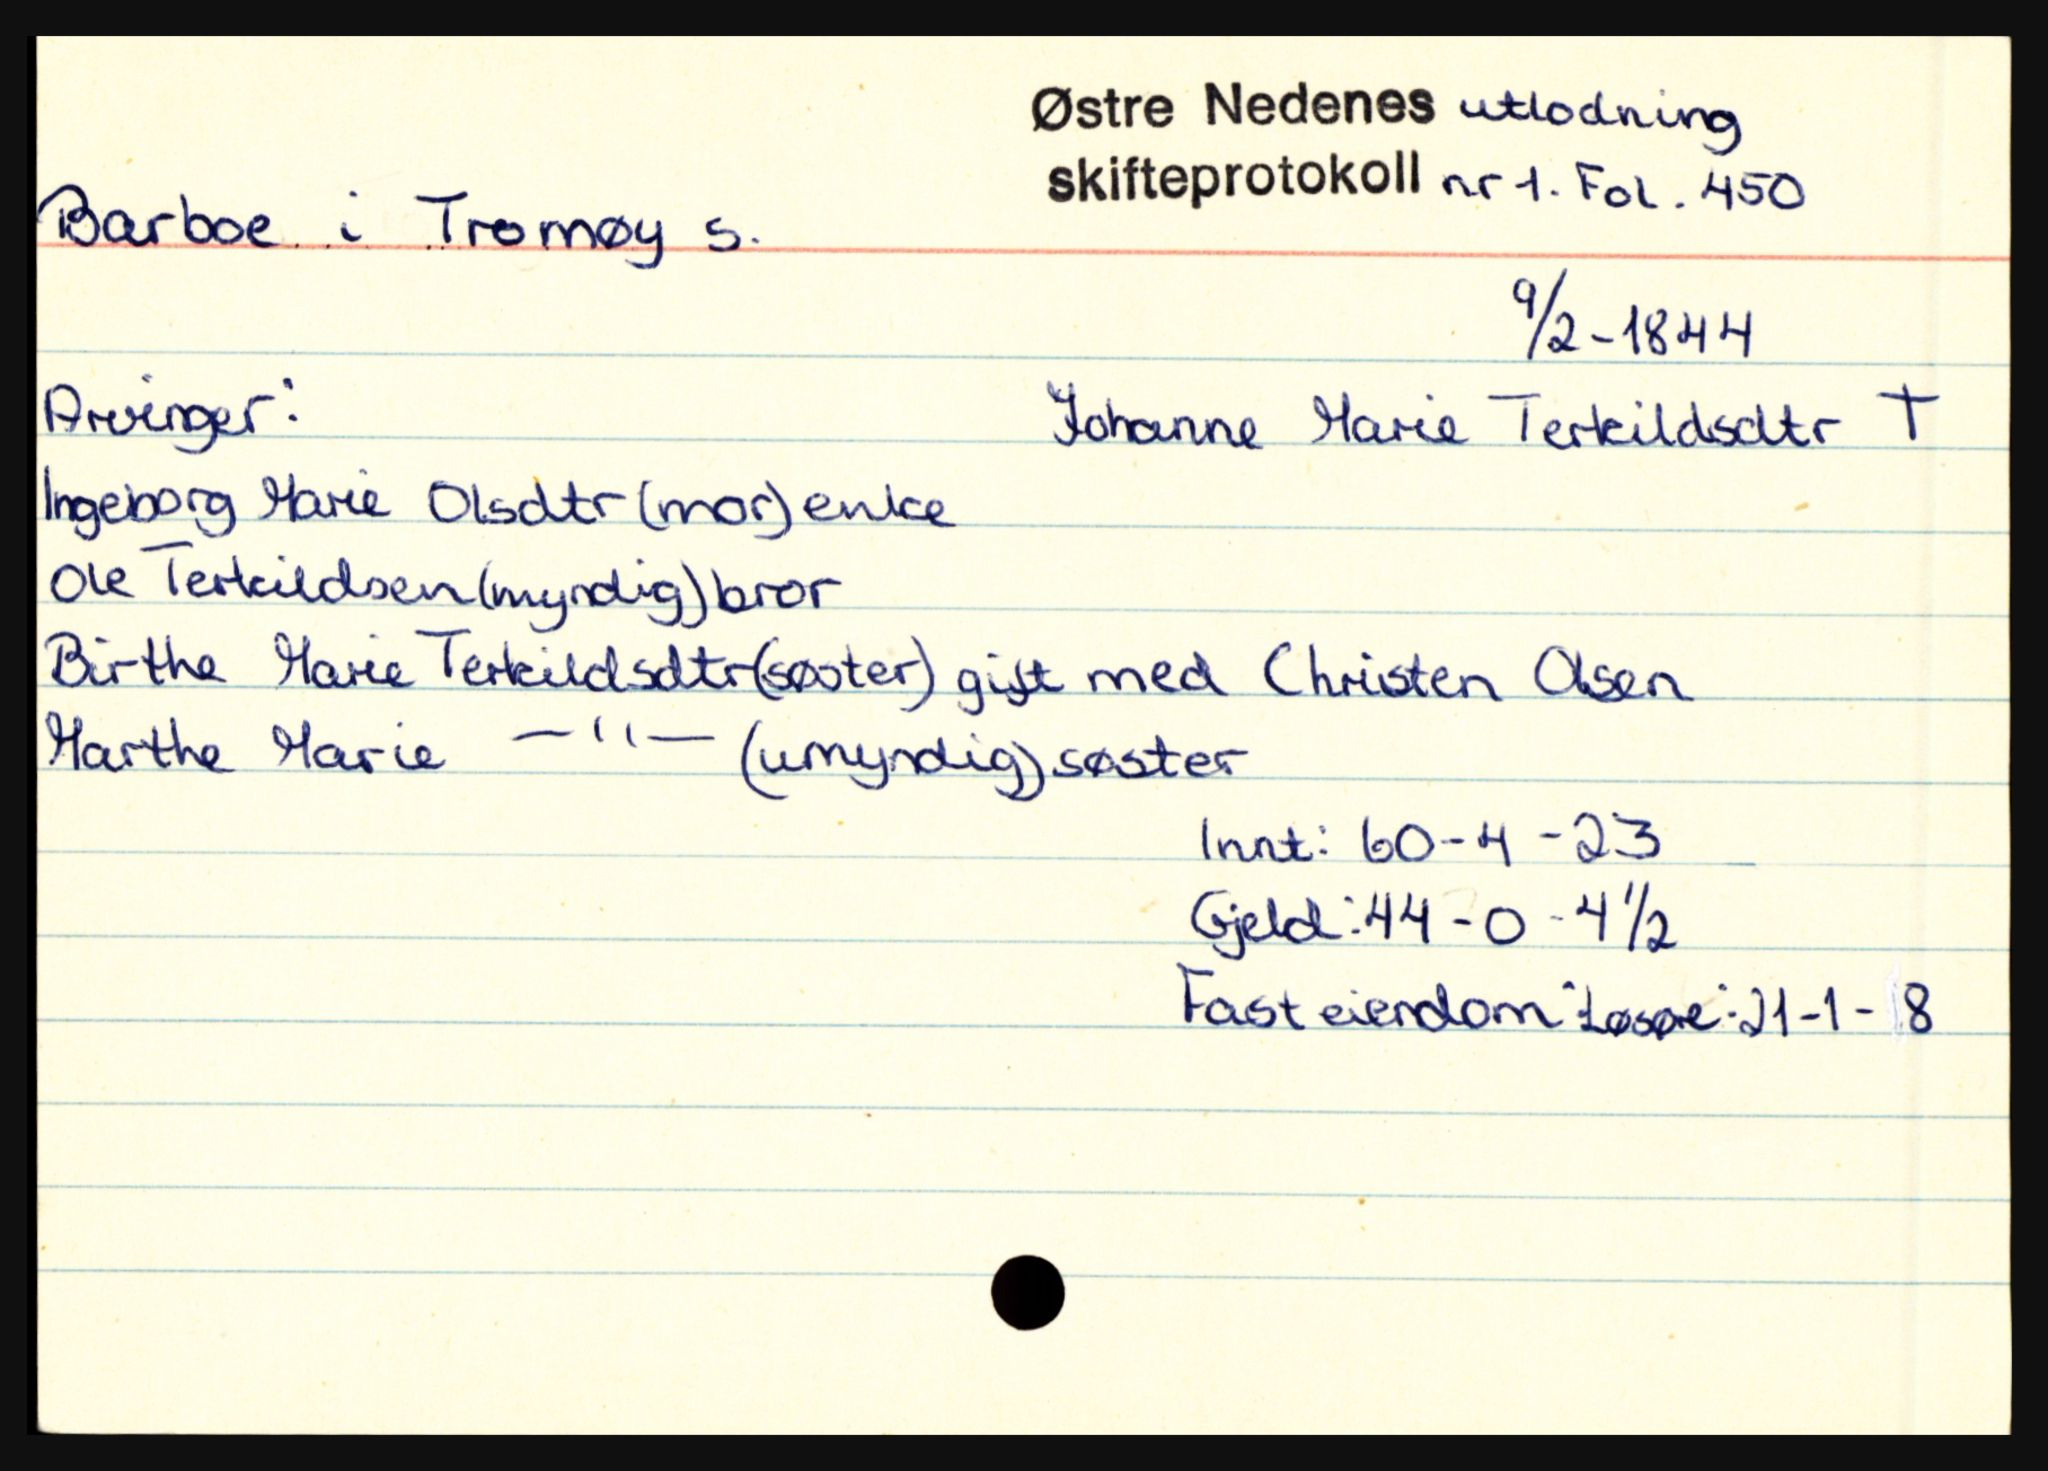 Østre Nedenes utlodning
skifteprotokoll nr 1. Fol. 450
Barboe i Tromøy s.
9/2-1844
Arvinger:
Johanne Marie Terkildsdtr †
Ingeborg Marie Olsdtr (mor) enke
Ole Terkildsen (myndig) bror
Birthe Marie Terkildsdtr (søster) gift med Christen Olsen
Marthe Marie —"— (umyndig) søster
Innt: 60-4-23
Gjeld: 44-0-4 1/2
Fast eiendom: Løsøre: 21-1-8